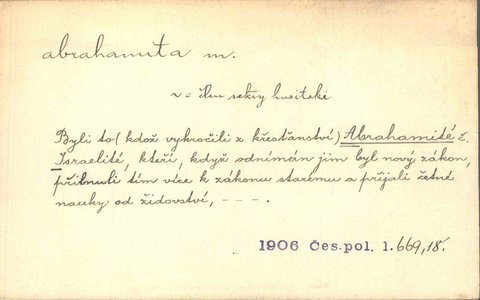 abrahamita m.
~ = člen sekty husitské
Byli to (kdož vykročili z křesťanství) Abrahamité č.
Israelité, kteří, když odnímán jim byl nový zákon,
přilnuli tím více k zákonu starému a přijali četné
nauky od židovství, - - - .
1906 Čes.pol. 1.669,18.